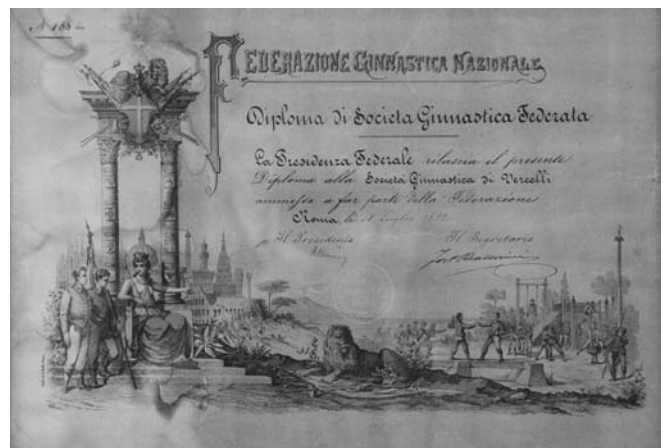 N. 188
FEDERAZIONE GINNASTICA NAZIONALE
Diploma di Società Ginnastica Federata
La Presidenza Federale rilascia il presente
Diploma alla Società Ginnastica di Vercelli
ammessa a far parte della Federazione
Roma, li Luglio
Il Presidente
Il Segretario